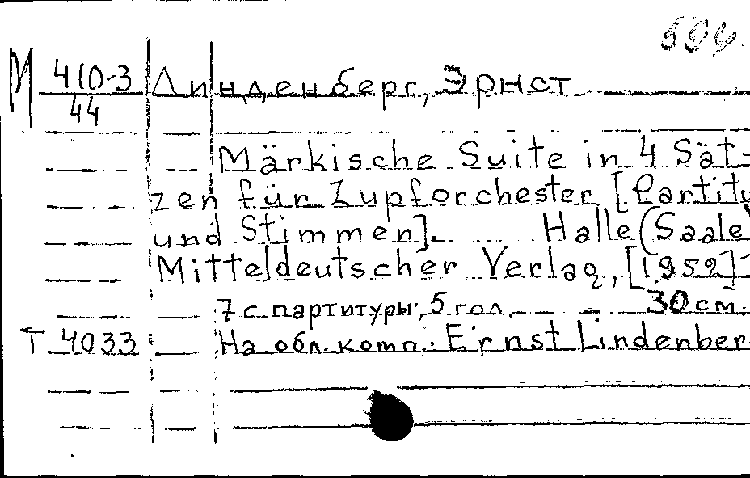 594.
М 410-3 Линденберг, Эрнст
44
Märkische Suite in 4 Sät-
zen für Zupforchester [Partitu
und Stimmen]. Halle (Saale
Mitteldeutscher Verlag, [1952]
7 с партитуры, 5 гол. 30 см.
Т 4033 На обл. комп.: Ernst Lindenber